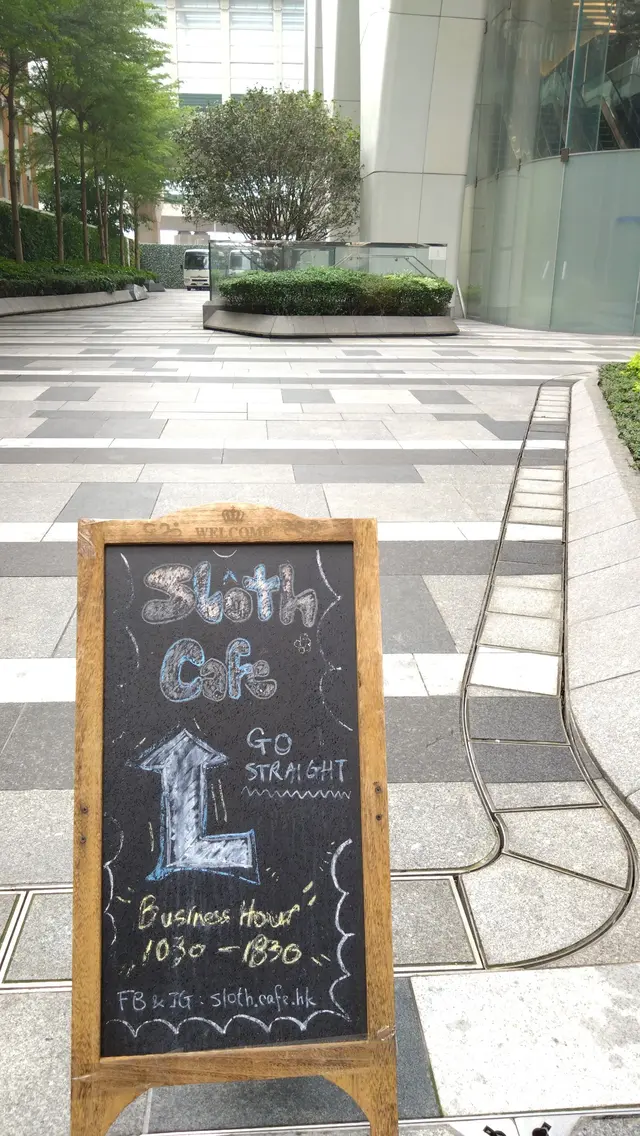 WELCOME
Sloth
Cafe
GO
STRAIGHT
Business Hour
1030 - 1830
FB & IG : sloth.cafe.hk